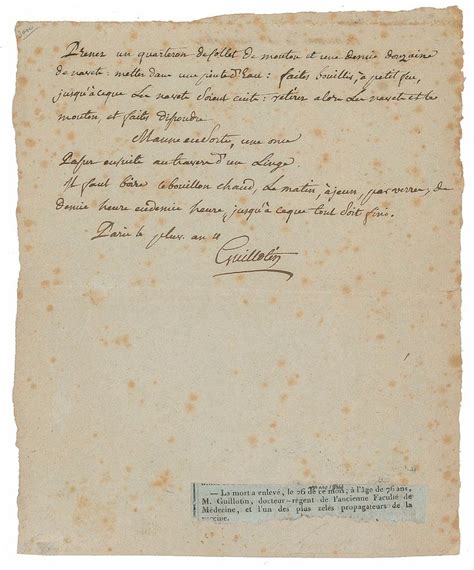 Prenez un quarteron de collet de mouton et une demie douzaine
de navets: mettez dans une pinte d'Eau: faites bouillir, à petit feu,
jusqu'à ceque Les navets Soient cuits: retirez alors Les navets et le
mouton, et faites dissoudre
Manne en Sorte, une once
Passer ensuite au travers d'un Linge.
Il faut boire le bouillon chaud, Le matin, à jeun, par verres, de
demie heure en demie heure, jusqu'à ceque tout Soit fini.
Paris le pluv. an
Guillotin
— La mort a enlevé, le 26 de ce mois, à l'âge de 76 ans,
M. Guillotin, docteur-régent de l'ancienne Faculté de
Médecine, et l'un des plus zélés propagateurs de la
vaccine.